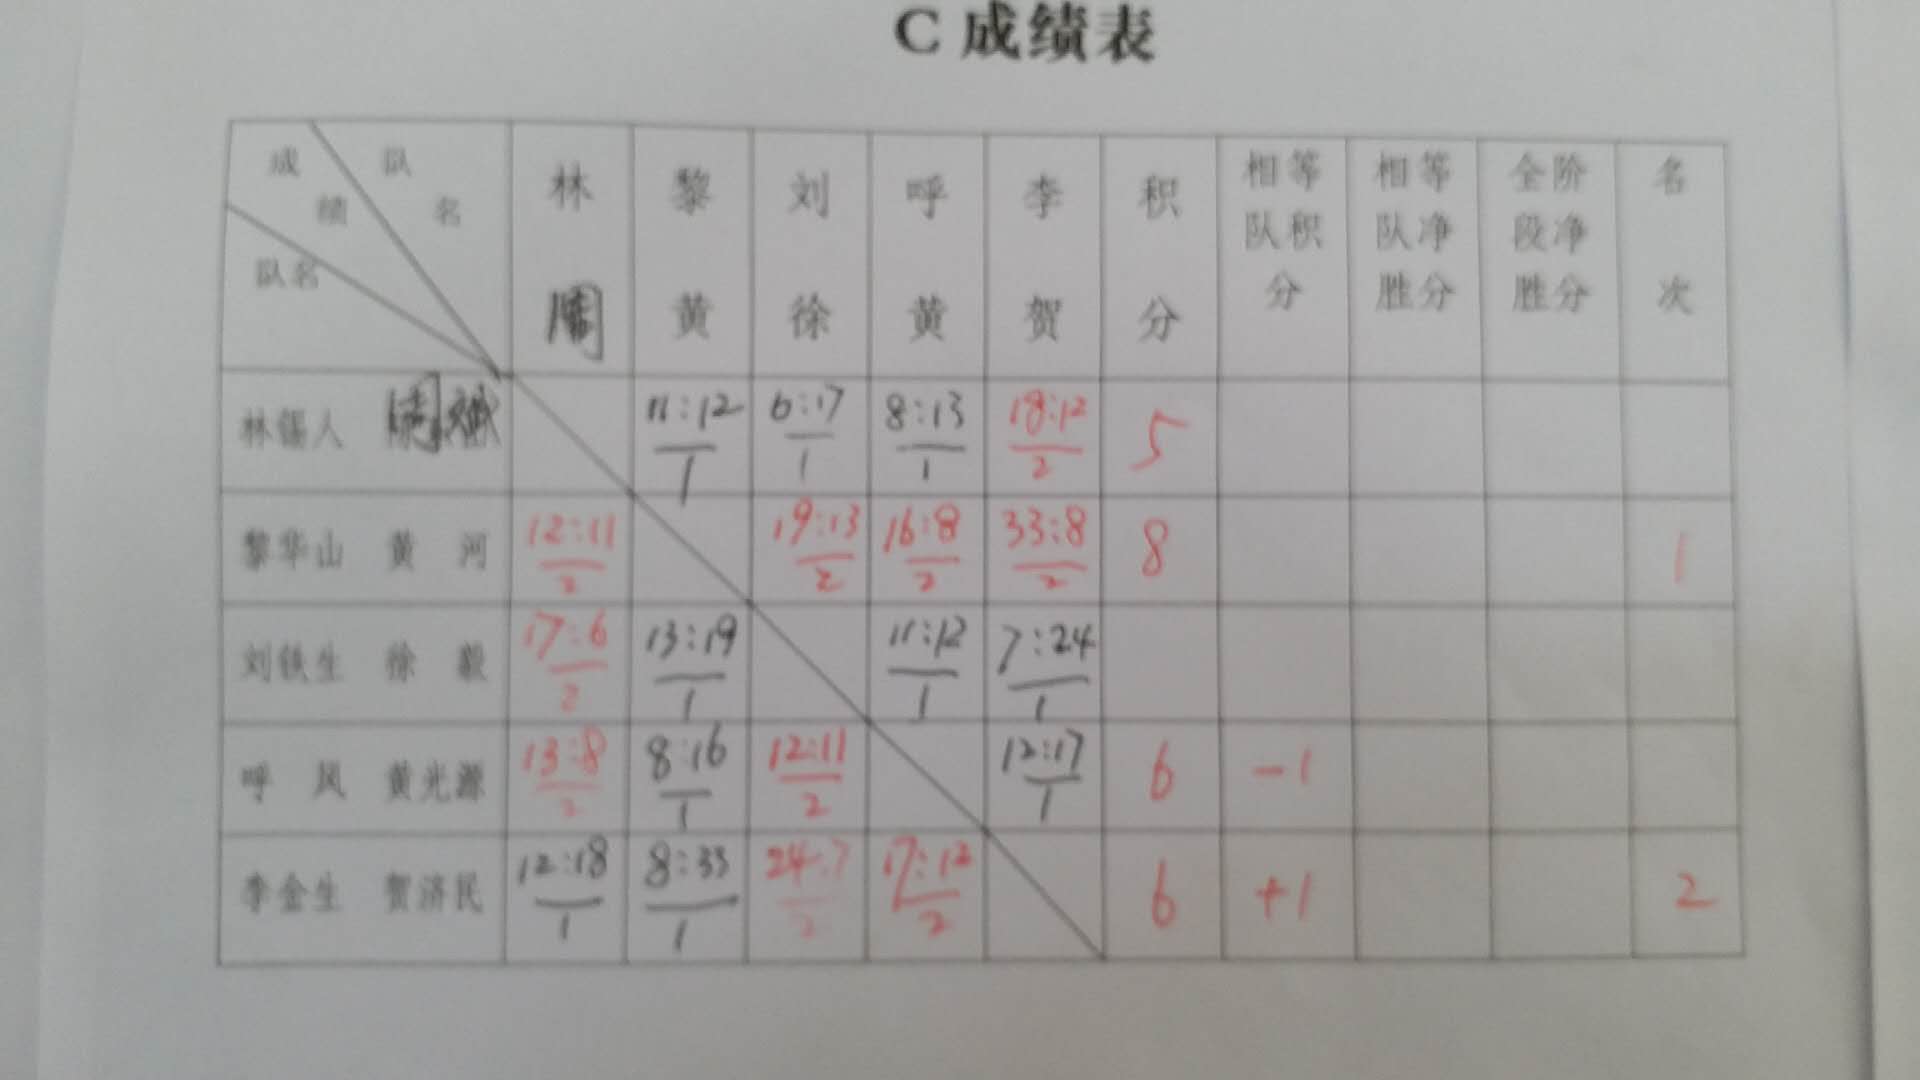 C 成绩表
成绩 队名 队名 林周 黎黄 刘徐 呼黄 李贺 积分 相等队积分 相等队净胜分 全阶段净胜分 名次
林锡人 周斌 11:12 1 6:17 1 8:13 1 18:12 2 5
黎华山 黄河 12:11 2 19:13 2 16:8 2 33:8 2 8 1
刘铁生 徐毅 17:6 2 13:19 1 11:12 1 7:24 1
呼风 黄光源 13:8 2 8:16 1 12:11 2 12:17 1 6 -1
李金生 贺济民 12:18 1 8:33 1 24:7 2 17:12 2 6 +1 2